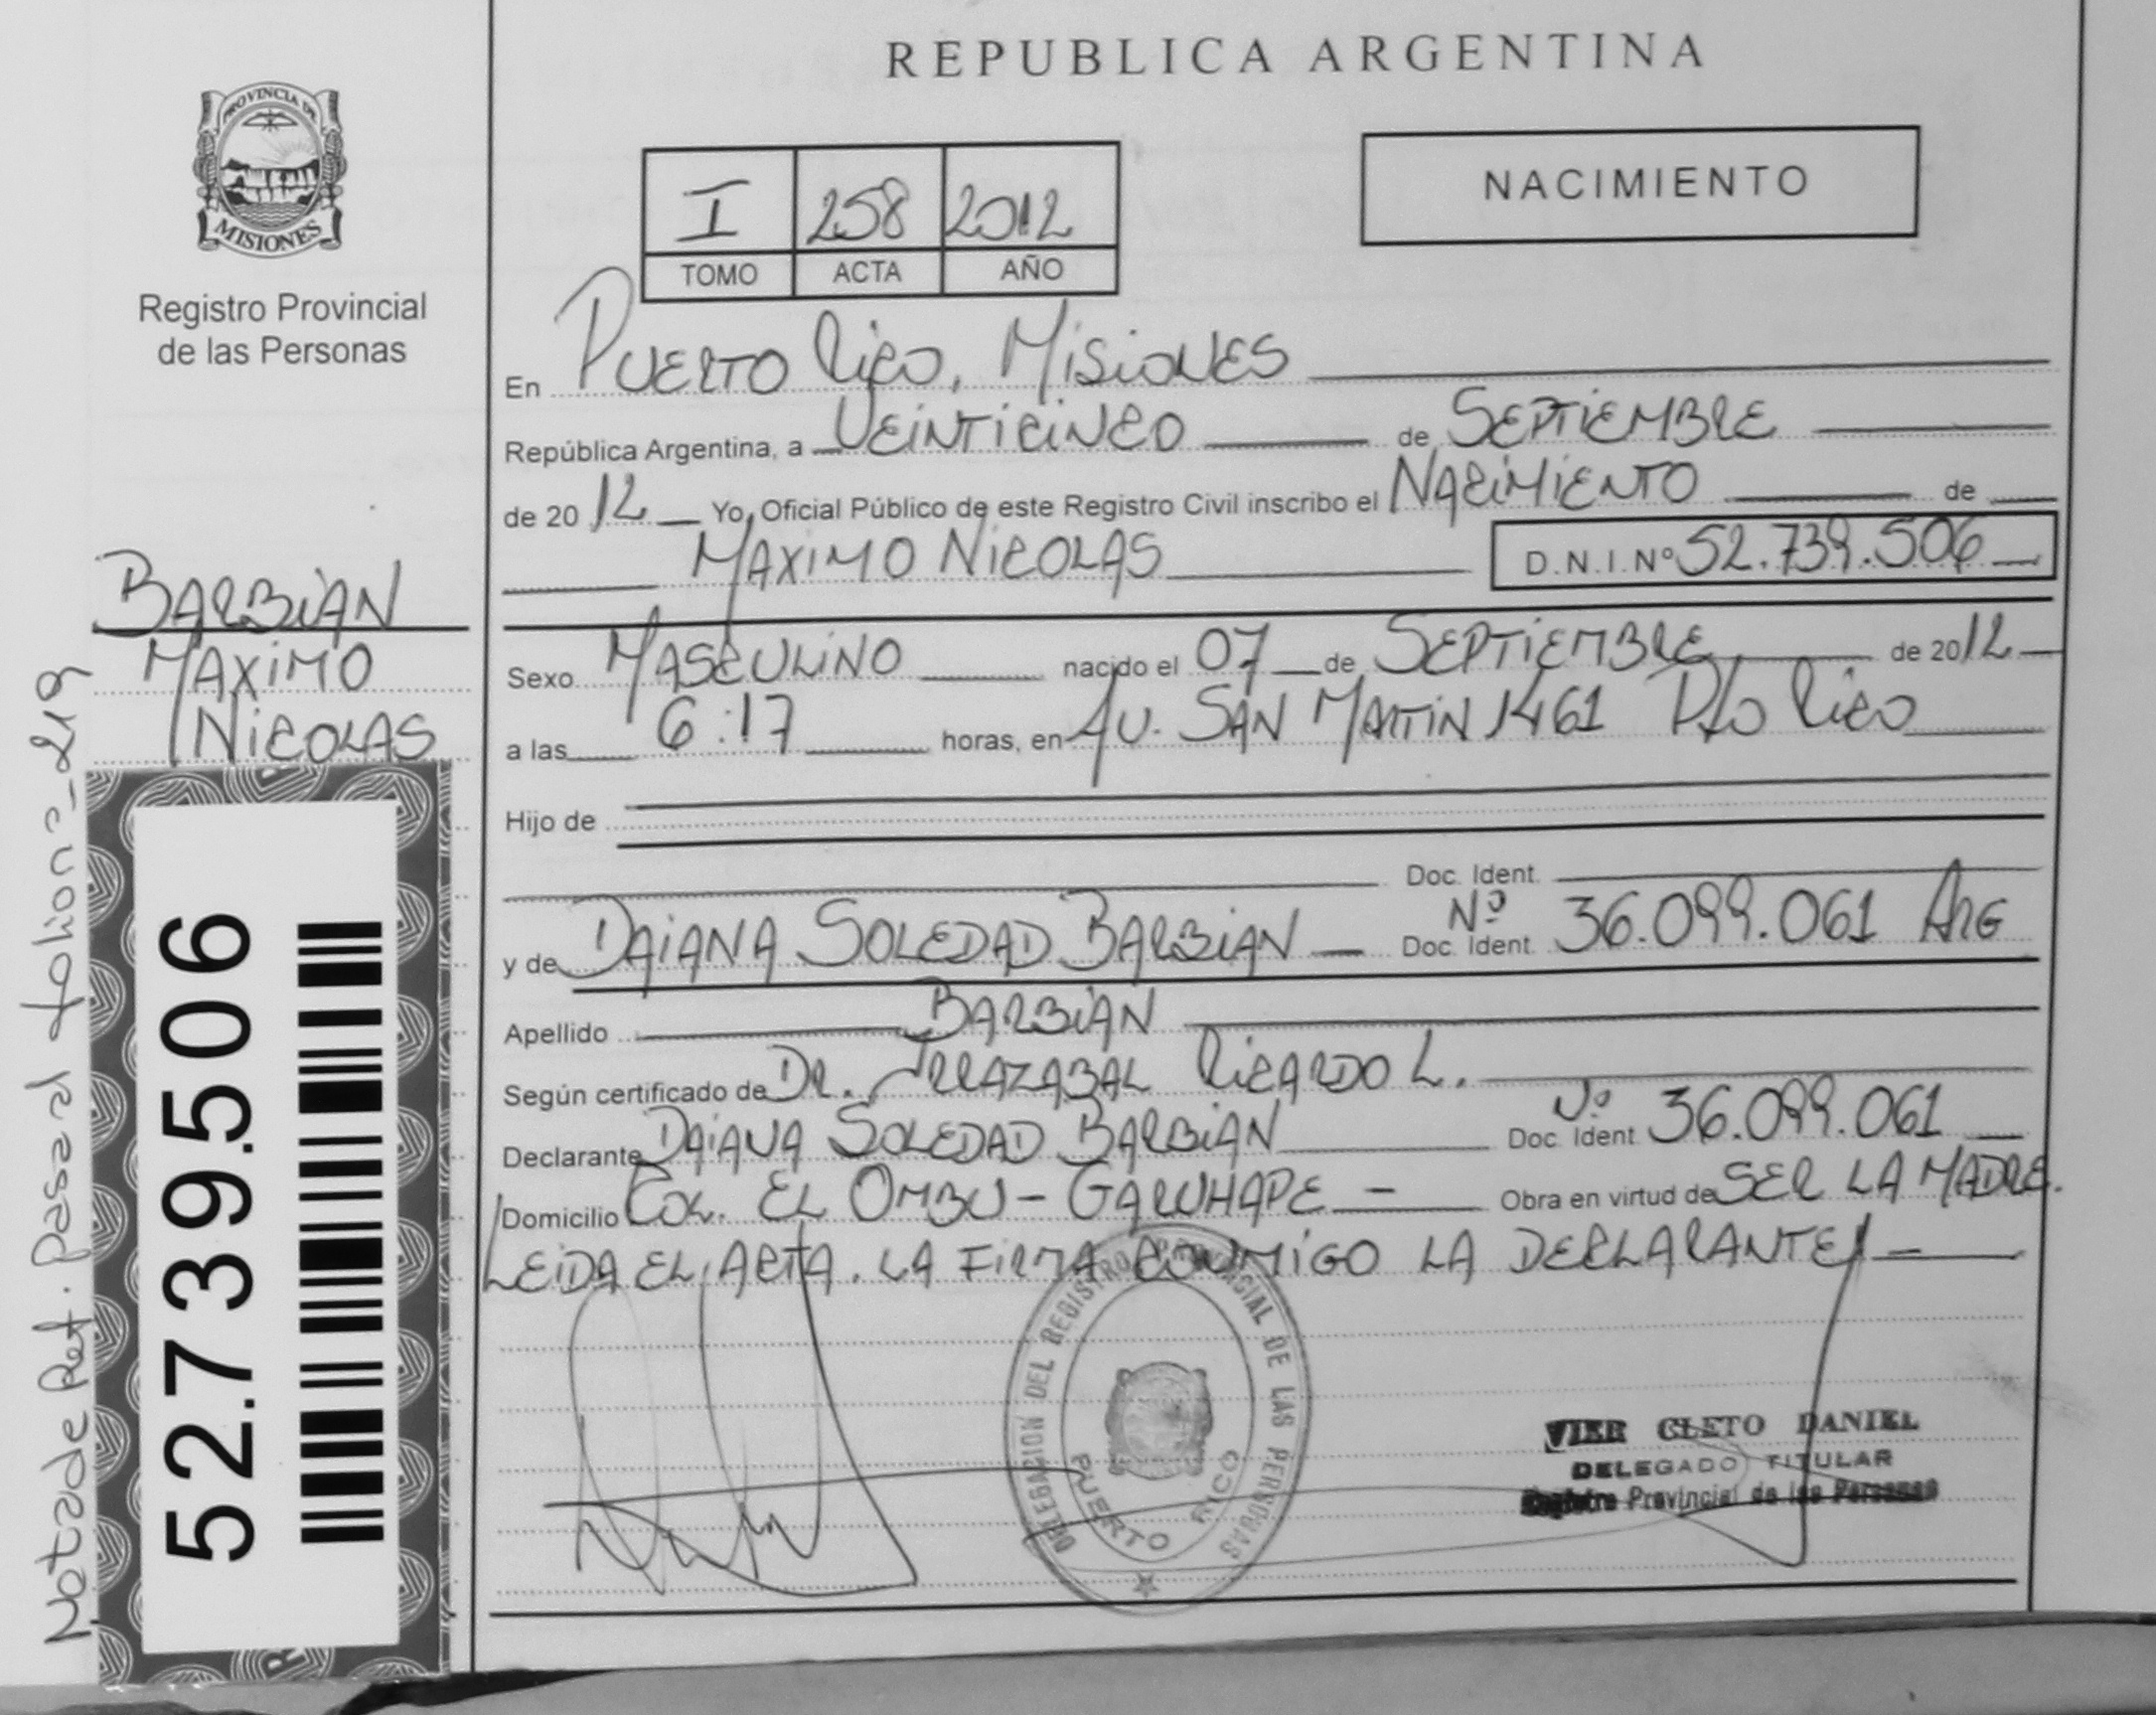 REPUBLICA ARGENTINA
PROVINCIA DE
MISIONES
Registro Provincial
de las Personas
NACIMIENTO
I 258 2012
TOMO ACTA AÑO
En PUERTO RICO, MISIONES
República Argentina, a VEINTICINCO de SEPTIEMBRE
de 20 12 Yo, Oficial Público de este Registro Civil inscribo el NACIMIENTO de
MAXIMO NICOLAS D.N.I. Nº 52.739.506
BARBIAN
MAXIMO
NICOLAS
Sexo MASCULINO nacido el 07 de SEPTIEMBRE de 20 12
a las 6:17 horas, en AV. SAN MARTIN 1461 Pto RICO
Hijo de
Doc. Ident.
y de DAIANA SOLEDAD BARBIAN Doc. Ident. Nº 36.099.061 ARG
Apellido BARBIAN
Según certificado de DR. IRRAZABAL RICARDO L.
Declarante DAIANA SOLEDAD BARBIAN Doc. Ident. Nº 36.099.061
Domicilio COL. EL OMBU - GARUHAPE - Obra en virtud de SER LA MADRE.
LEIDA EL ACTA. LA FIRMA CONMIGO LA DECLARANTE
52.739.506
Nota de Ref. Pasa al folio nº 219
DELEGACION DEL REGISTRO PROVINCIAL DE LAS PERSONAS
PUERTO RICO
VIER CLETO DANIEL
DELEGADO TITULAR
Registro Provincial de las Personas